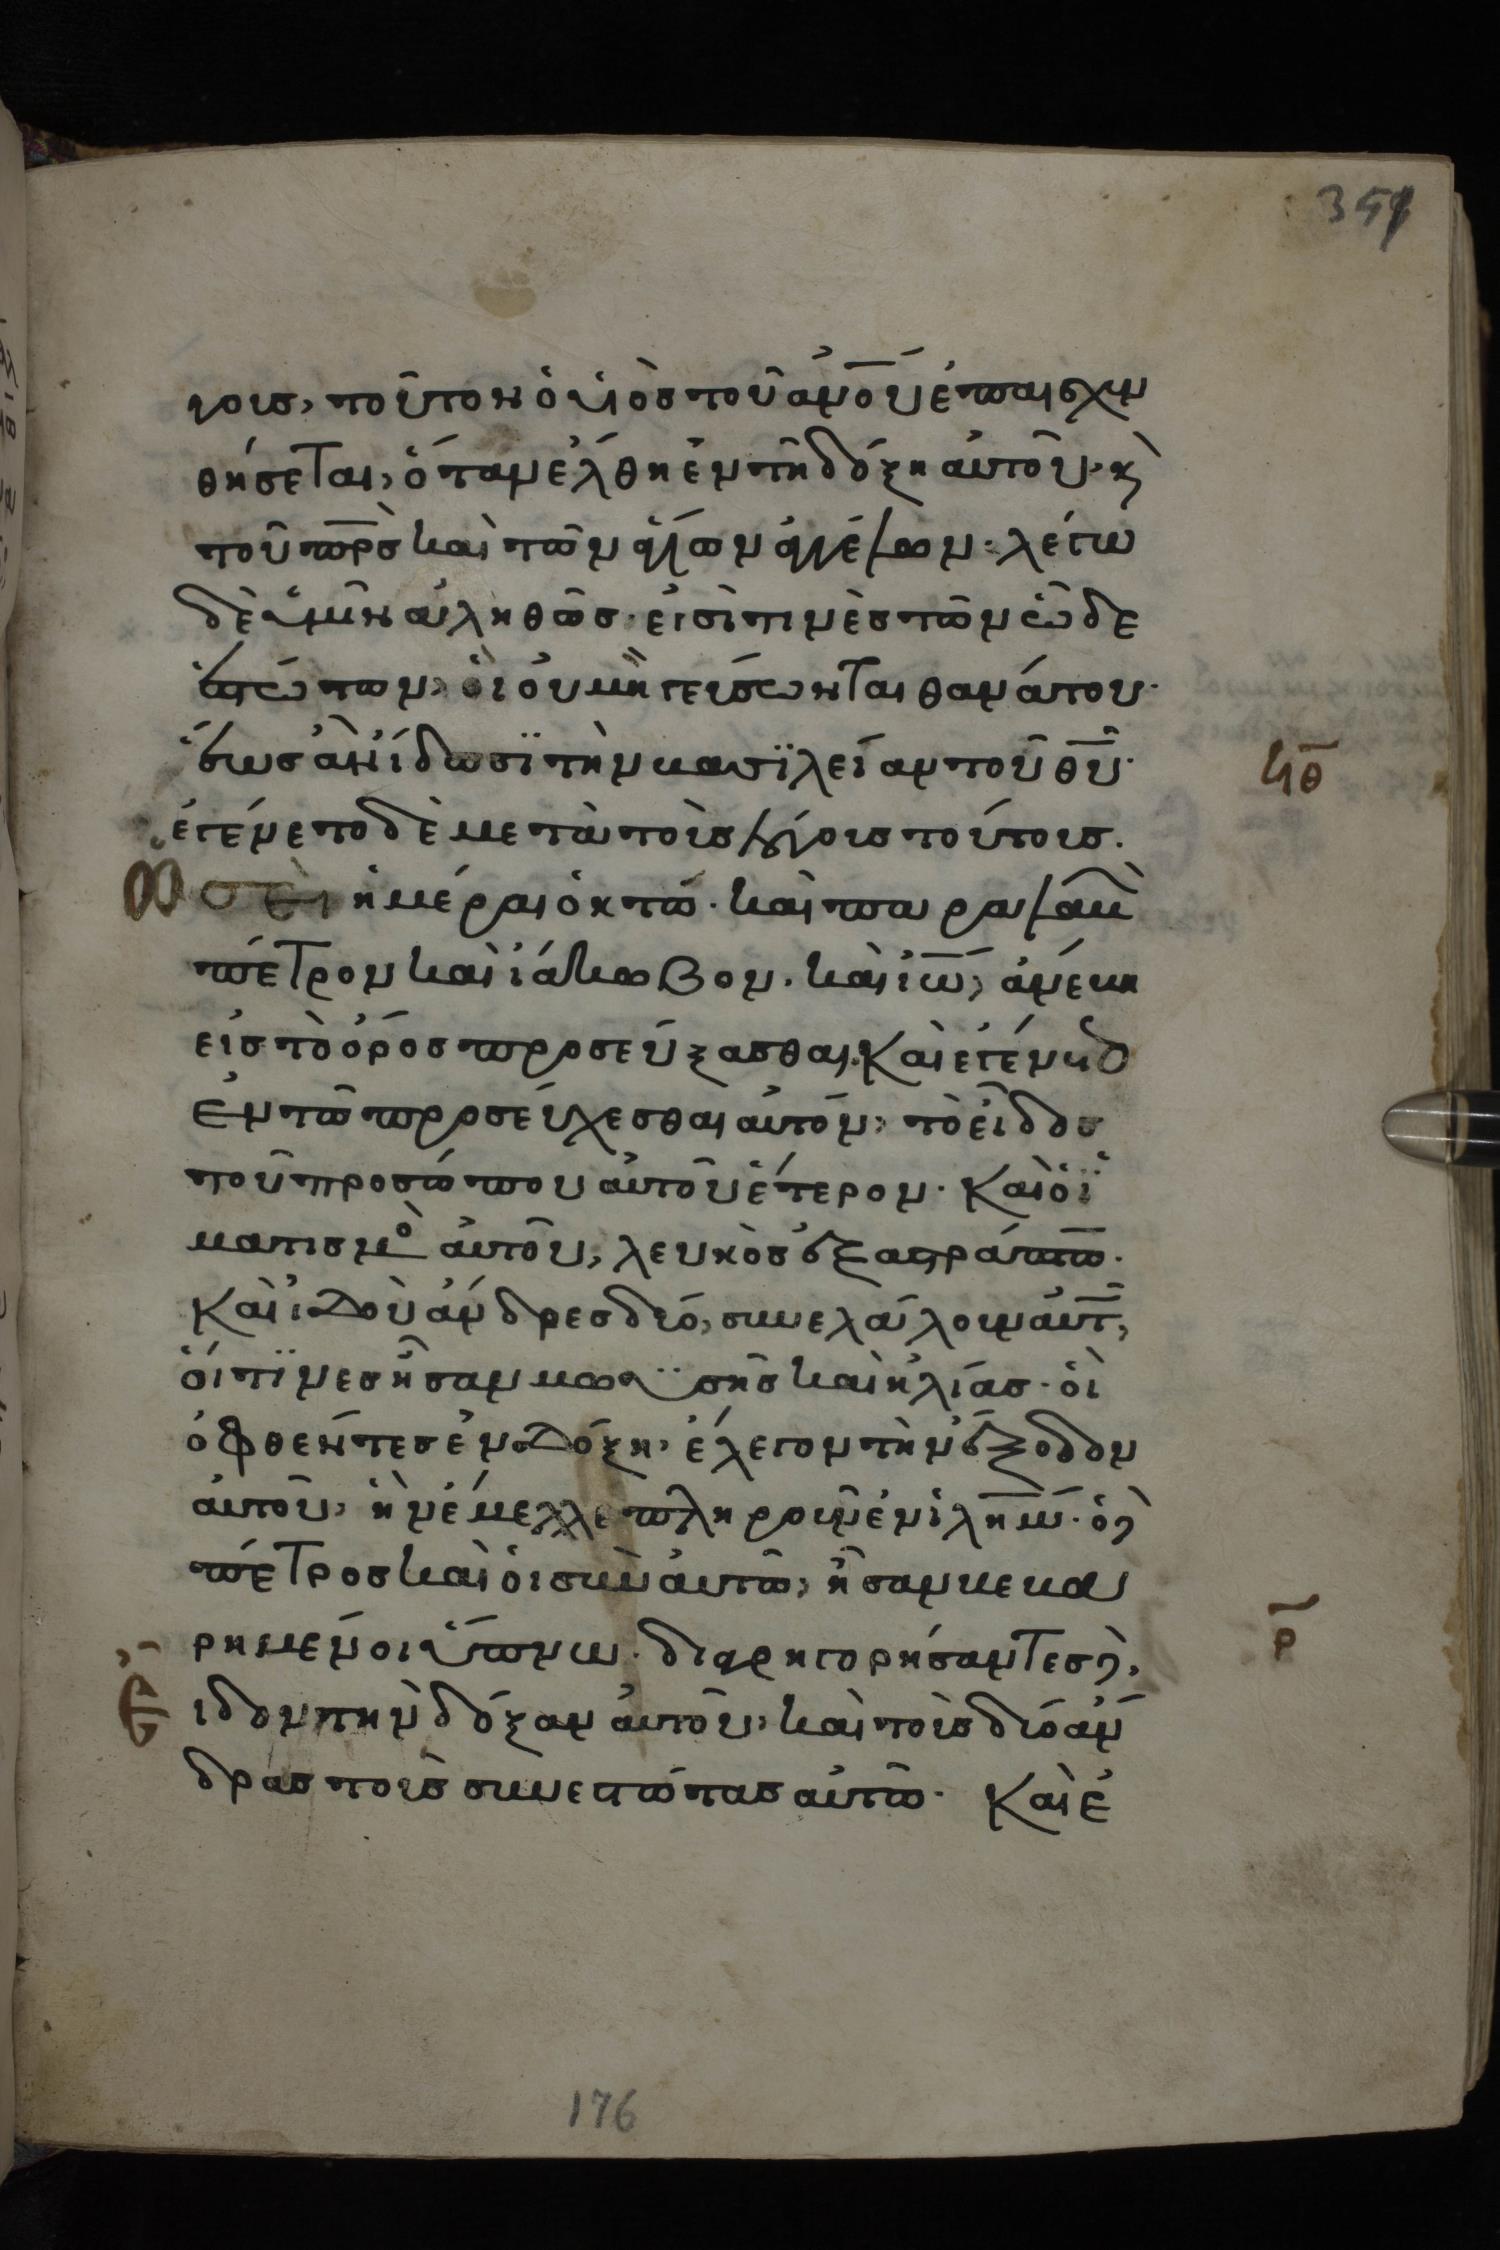 351
γους, τοῦτον ὁ υἱὸς τοῦ ἀν̅ου̅ ἐπαισχυν
θήσεται, ὅταν ἔλθη ἐν τῆ δόξη αὐτοῦ, κ̀
τοῦ πρ̅ς̀ καὶ τῶν ἁγίων ἀγγέλων· λέγω
δὲ ὑμῖν ἀληθῶς· εἰσὶ τινὲς τῶν ὧδε
ἑστώτων, οἳ οὐ μὴ γεύσωνται θανάτου·
ἕως ἂν ἴδωσϊ τὴν βασϊλείαν τοῦ θυ̅·
ϟθ̅
ἐγένετο δὲ μετὰ τοὺς λόγους τούτους.
ὡσεὶ ἡμέραι ὀκτώ· καὶ παραλαβὼ
πέτρον καὶ ἰάκωβον· καὶ ἰω̅, ἀνέβη
εἰς τὸ ὄρος προσεύξασθαι. Καὶ ἐγένετο
ἐν τῶ προσεύχεσθαι αὐτόν, τὸ εἶδος
τοῦ προσώπου αὐτοῦ ἕτερον· Καὶ ὁ ἱ
ματισμὸ αὐτοῦ, λευκὸς ἐξαστράπτω·
Καὶ ἰδοὺ ἄνδρες δύο, συνελάλουν αὐτ̅,
οἵτϊνες ἦσαν μωϋσῆς καὶ ἠλίας· οἳ
ὀφθέντες ἐν δόξη, ἔλεγον τὴν ἔξοδον
αὐτοῦ, ἣν ἔμελλε πληροῦν ἐν ἱλη̅μ· ὁ δὲ
πέτρος καὶ οἱ σὺν αὐτῶ, ἦσαν βεβα
ρημένοι ὕπνω· διαγρηγορήσαντες δὲ,
ρ̅
εἶδον τὴν δόξαν αὐτοῦ, καὶ τοὺς δύο ἄν
δρας τοὺς συνεστώτας αὐτῶ· Καὶ ἐ
176